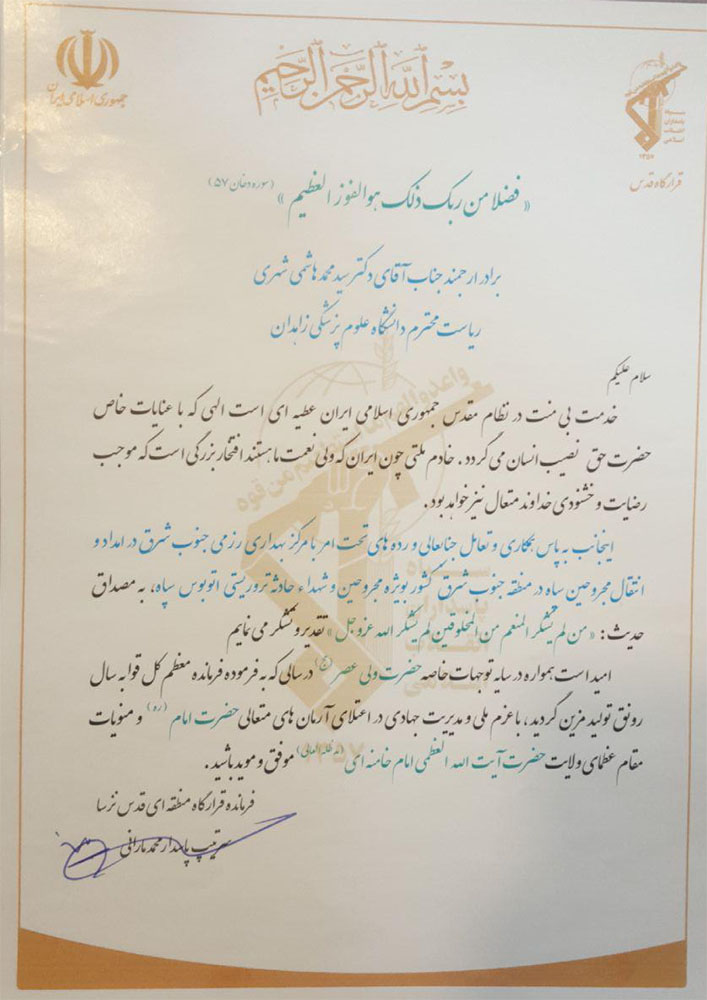 جمهوری اسلامی ایران
بسم الله الرحمن الرحیم
سپاه
پاسداران
انقلاب
اسلامی
۱۳۵۷
قرارگاه قدس
« فضلا من ربک ذلک هو الفوز العظیم » (سوره دخان ۵۷)
برادر ارجمند جناب آقای دکتر سید محمد هاشمی شهری
ریاست محترم دانشگاه علوم پزشکی زاهدان
سلام علیکم
خدمت بی منت در نظام مقدس جمهوری اسلامی ایران عطیه ای است الهی که با عنایات خاص
حضرت حق نصیب انسان می گردد . خادم ملتی چون ایران که ولی نعمت ما هستند افتخار بزرگی است که موجب
رضایت و خشنودی خداوند متعال نیز خواهد بود .
اینجانب به پاس همکاری و تعامل جنابعالی و رده های تحت امر با مرکز بهداری رزمی جنوب شرق در امداد و
انتقال مجروحین سپاه در منطقه جنوب شرق کشور بویژه مجروحین و شهداء حادثه تروریستی اتوبوس سپاه، به مصداق
حدیث : «من لم یشکر المنعم من المخلوقین لم یشکر الله عزوجل » تقدیر و تشکر می نمایم
امید است همواره در سایه توجهات خاصه حضرت ولی عصر (عج) در سالی که به فرموده فرمانده معظم کل قوا به سال
رونق تولید مزین گردید ، با عزم ملی و مدیریت جهادی در اعتلای آرمان های متعالی حضرت امام (ره) و منویات
مقام عظمای ولایت حضرت آیت الله العظمی امام خامنه ای (مدظله العالی) موفق و موید باشید .
فرمانده قرارگاه منطقه ای قدس نزسا
سرتیپ پاسدار محمد مارانی